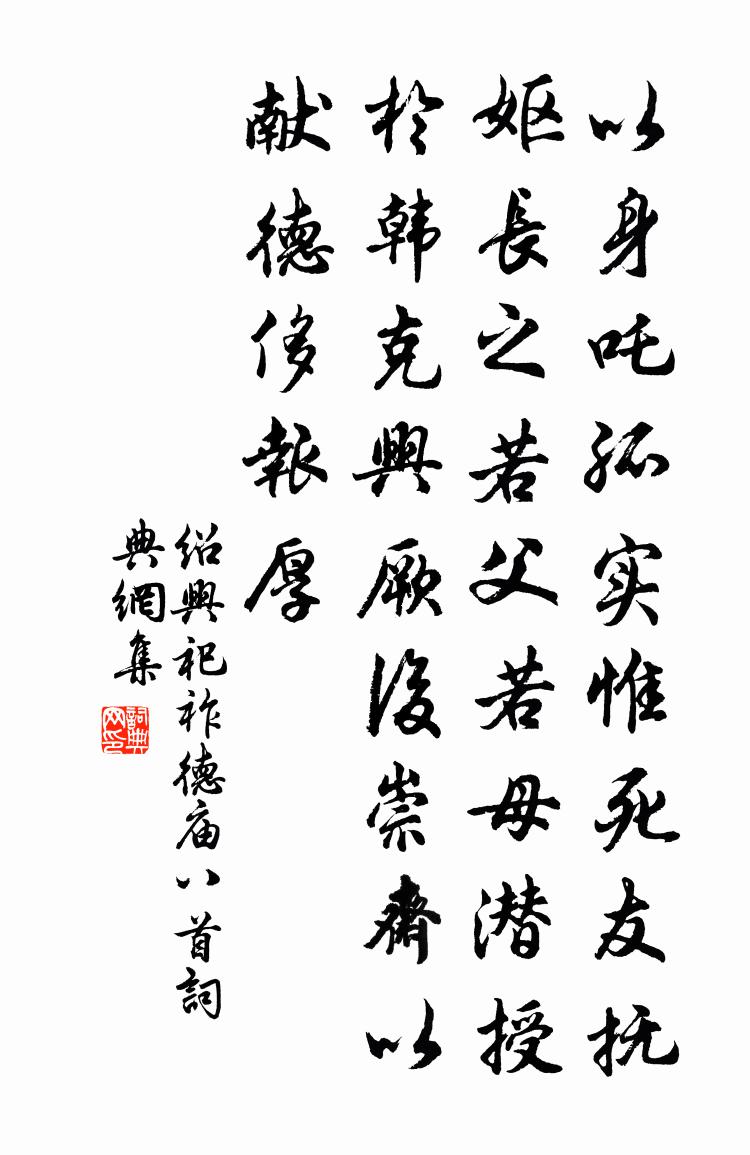 以身吒孤实惟死友抚
妪長之若父若母潜授
於韩克興厥後崇斋以
献德侈報厚
绍興祀祚德庙八首詞
典網集
詞典网印